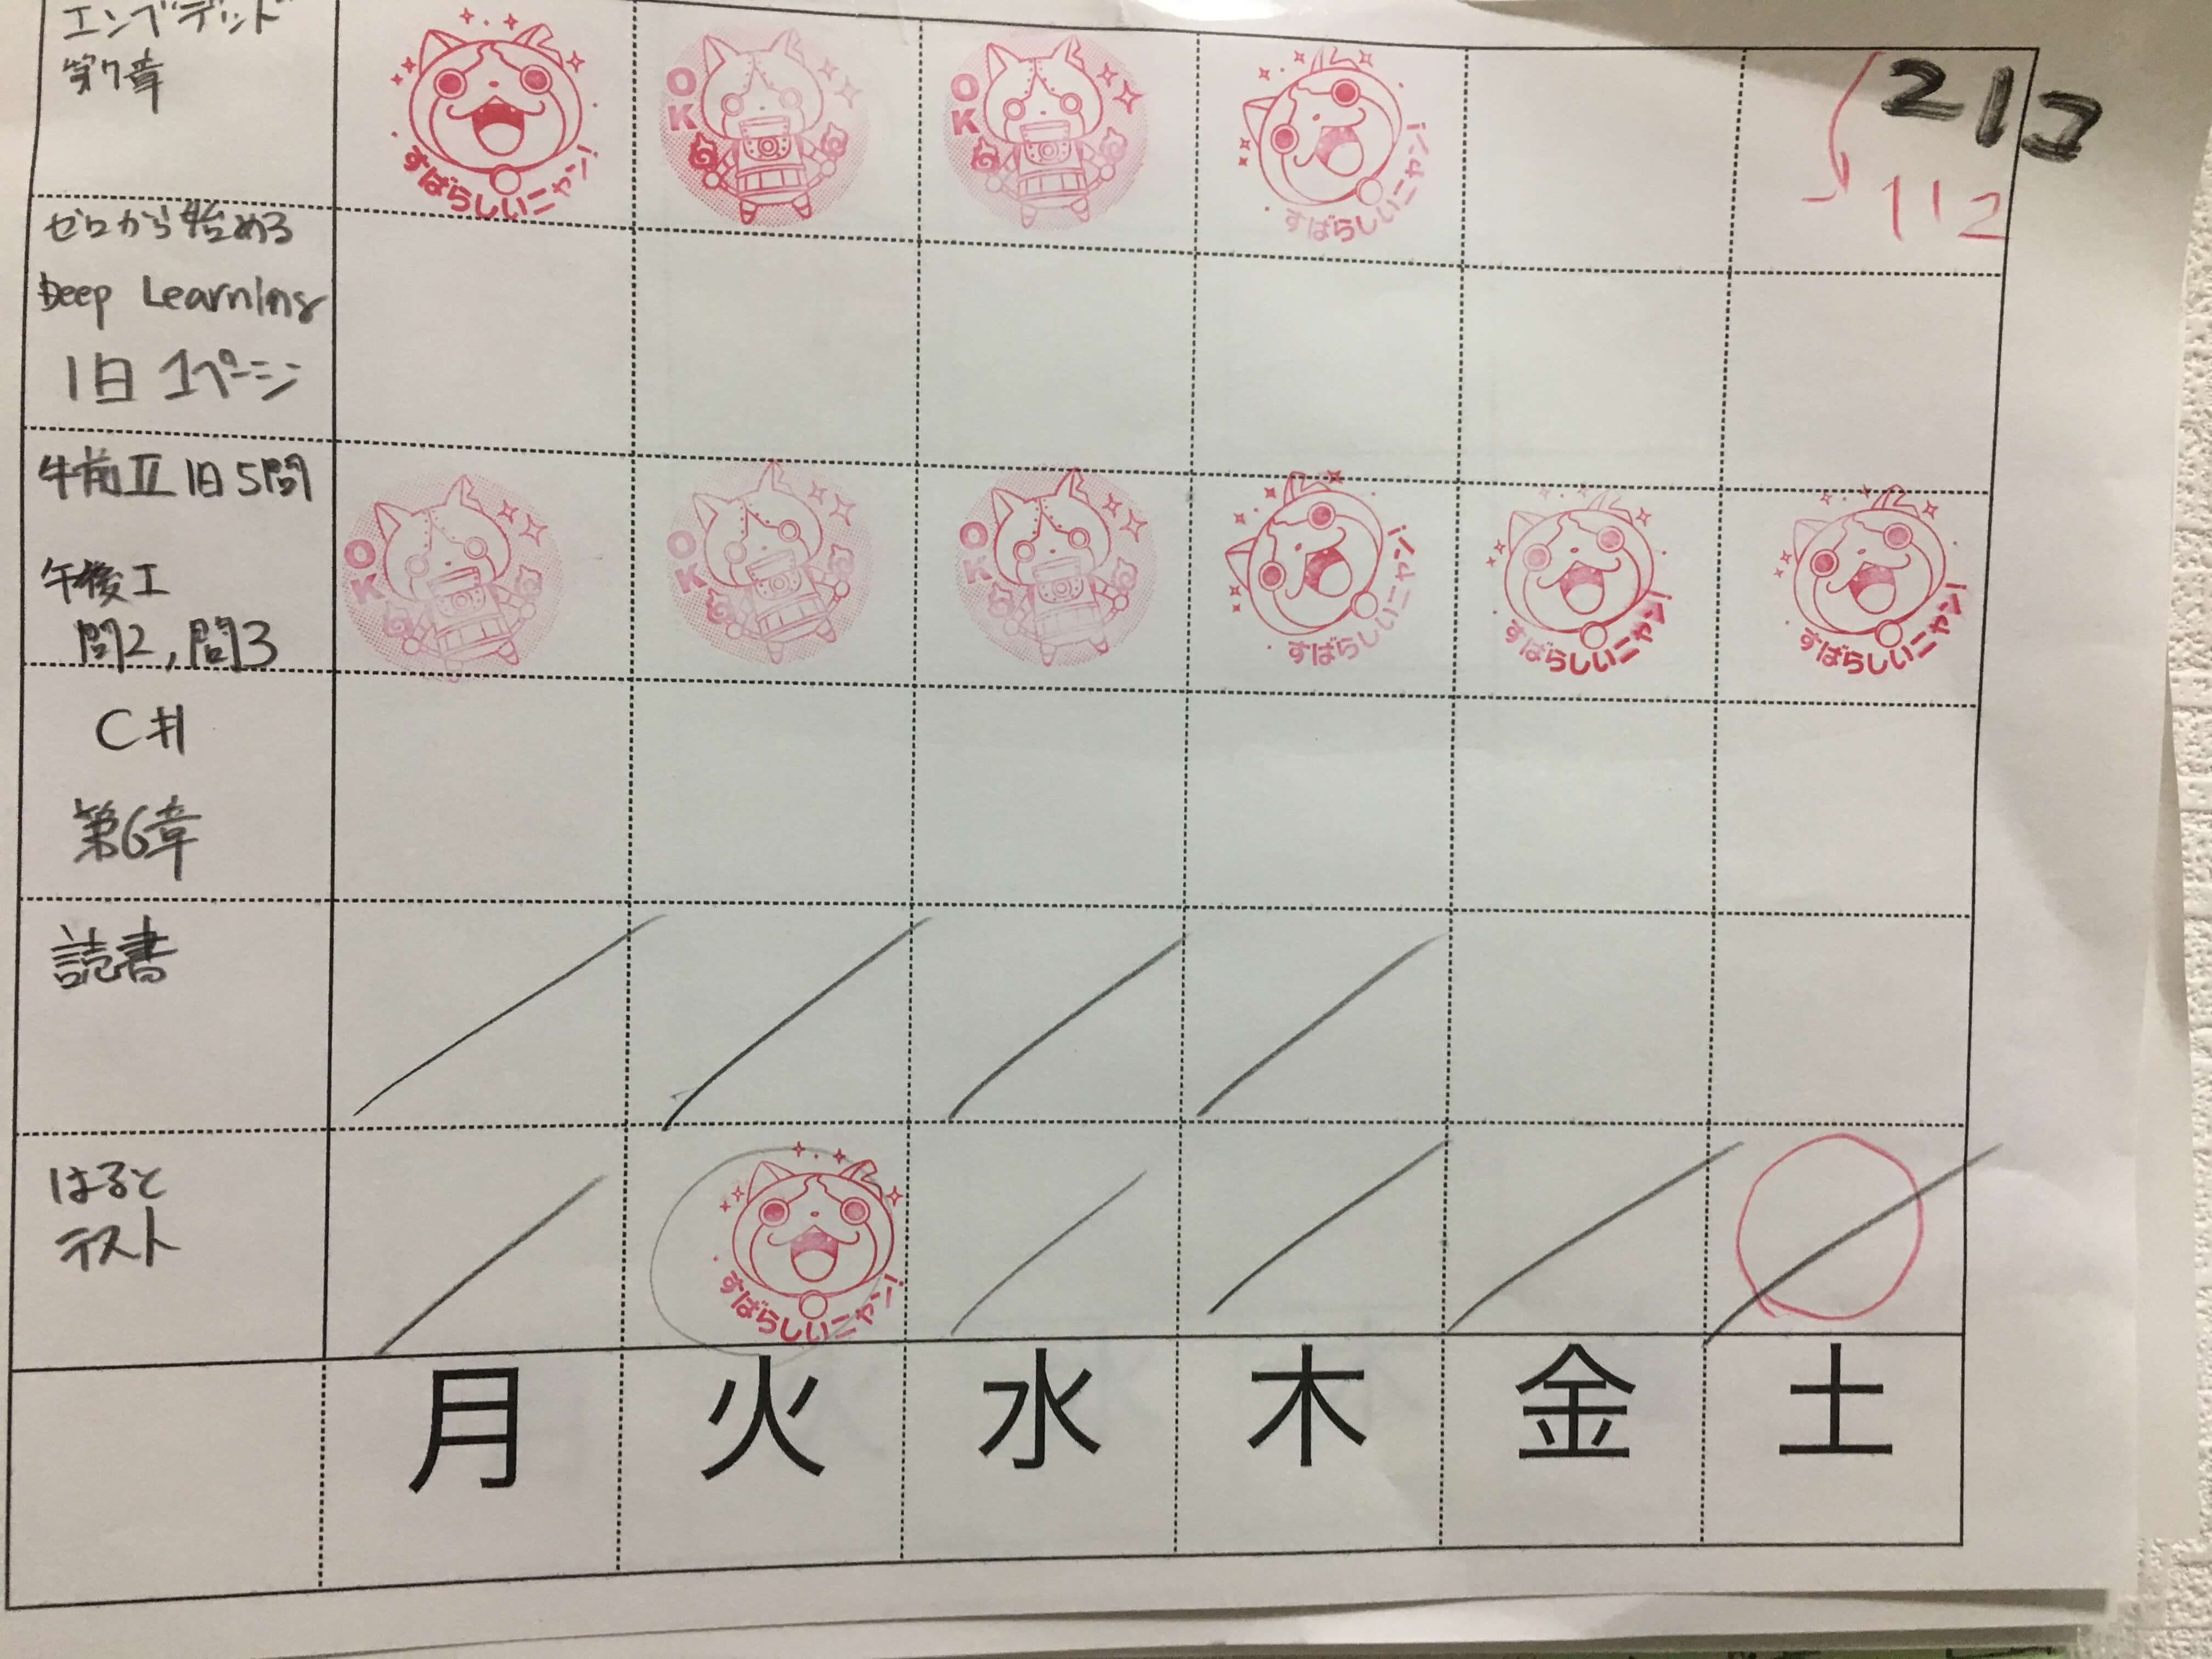 エンベデッド
第7章
すばらしいニャン!
OK
OK
すばらしいニャン!
212
112
ゼロから始める
Deep Learning
1日 1ページ
午前Ⅱ 1日5問
午後Ⅰ
問2,問3
OK
OK
OK
すばらしいニャン!
すばらしいニャン!
すばらしいニャン!
C#
第6章
読書
はると
テスト
すばらしいニャン!
月 火 水 木 金 土